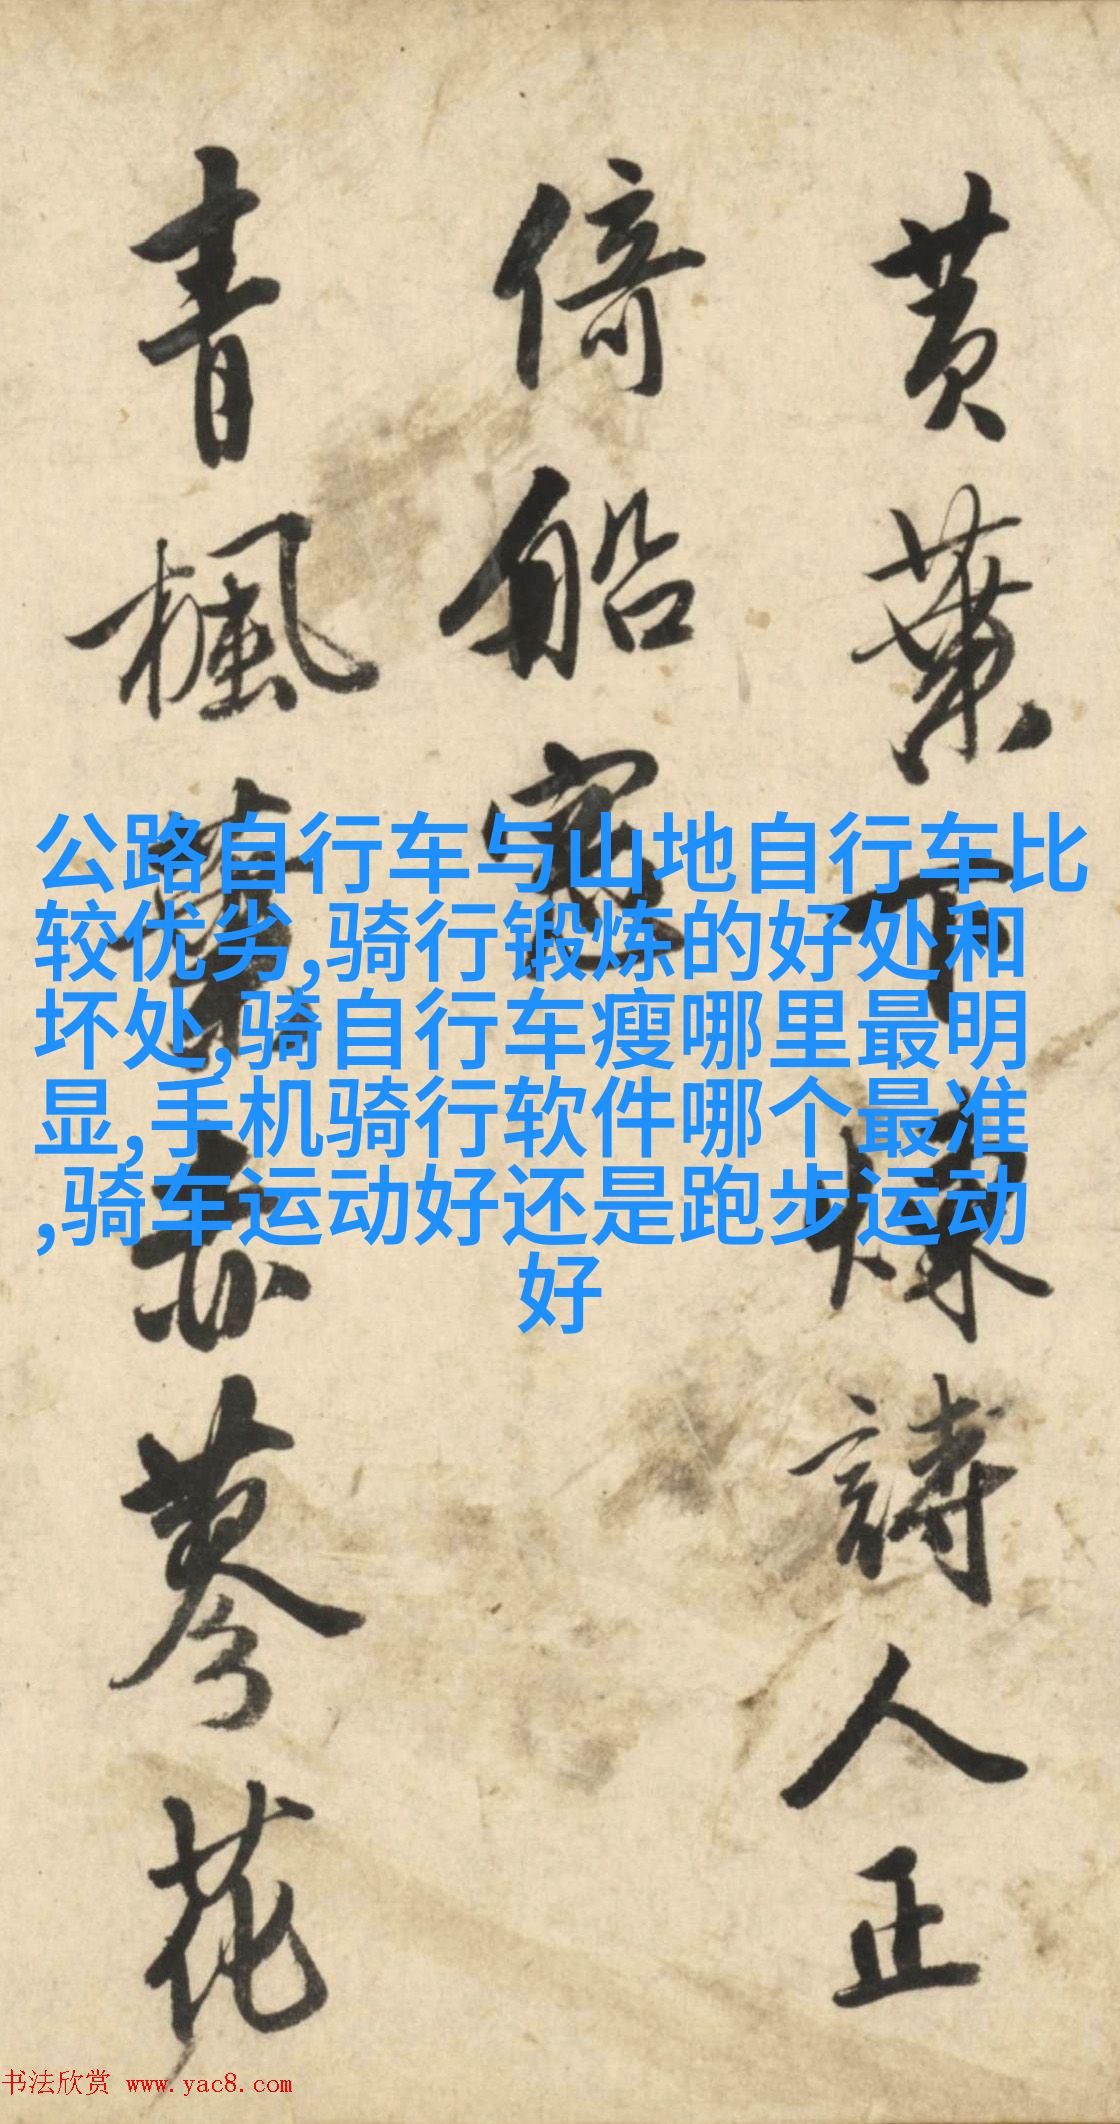 黄葉下陳詩人正
倚船窓
青楓葉赤蓼花
公路自行车与山地自行车比
较优劣,骑行锻炼的好处和
坏处,骑自行车瘦哪里最明
显,手机骑行软件哪个最准
,骑车运动好还是跑步运动
好
书法欣赏 www.yac8.com